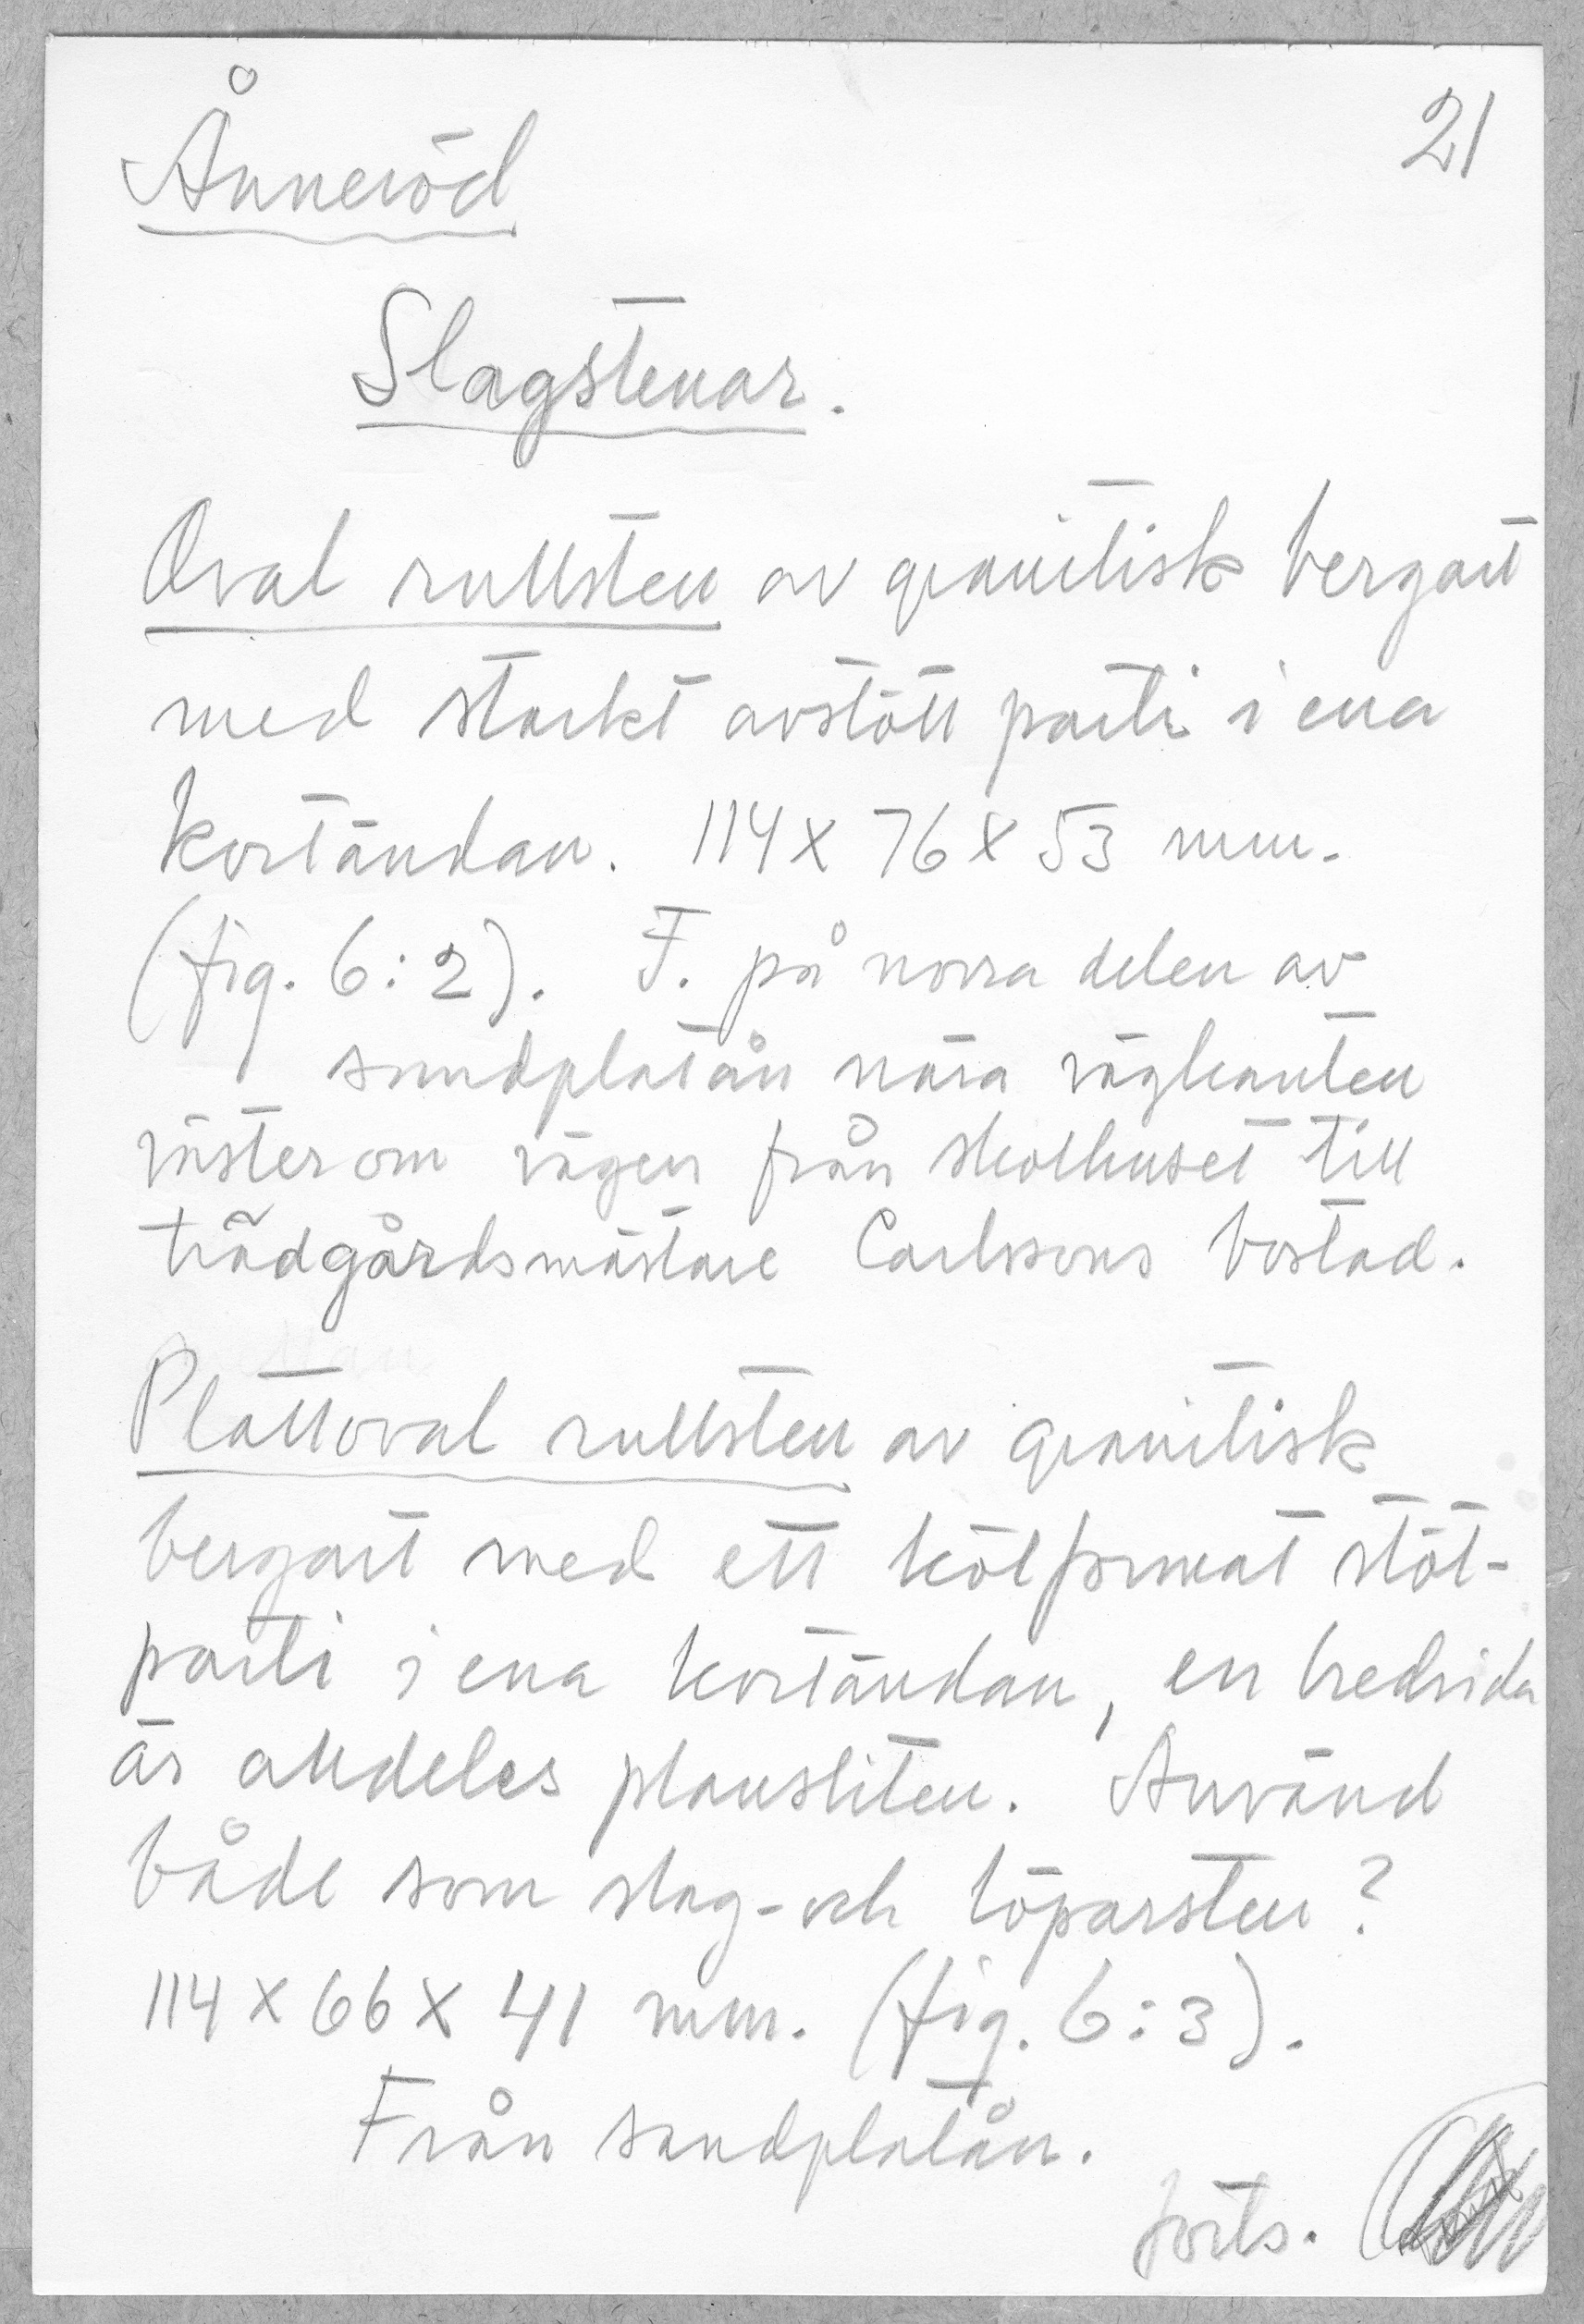 Ånneröd
21
Slagstenar.
Oval rullsten av granitisk bergart
med starkt avstött parti i ena
kortändan. 114 x 76 x 53 mm.
(fig. 6:2). F. på norra delen av
sandplatån nära vägkanten
väster om vägen från skolhuset till
trädgårdsmästare Carlssons bostad.
Plattoval rullsten av granitisk
bergart med ett kölformat stöt-
parti i ena kortändan, en bredsida
är alldeles plansliten. Använd
både som slag- och löparsten?
114 x 66 x 41 mm. (fig. 6:3).
Från sandplatån.
forts.